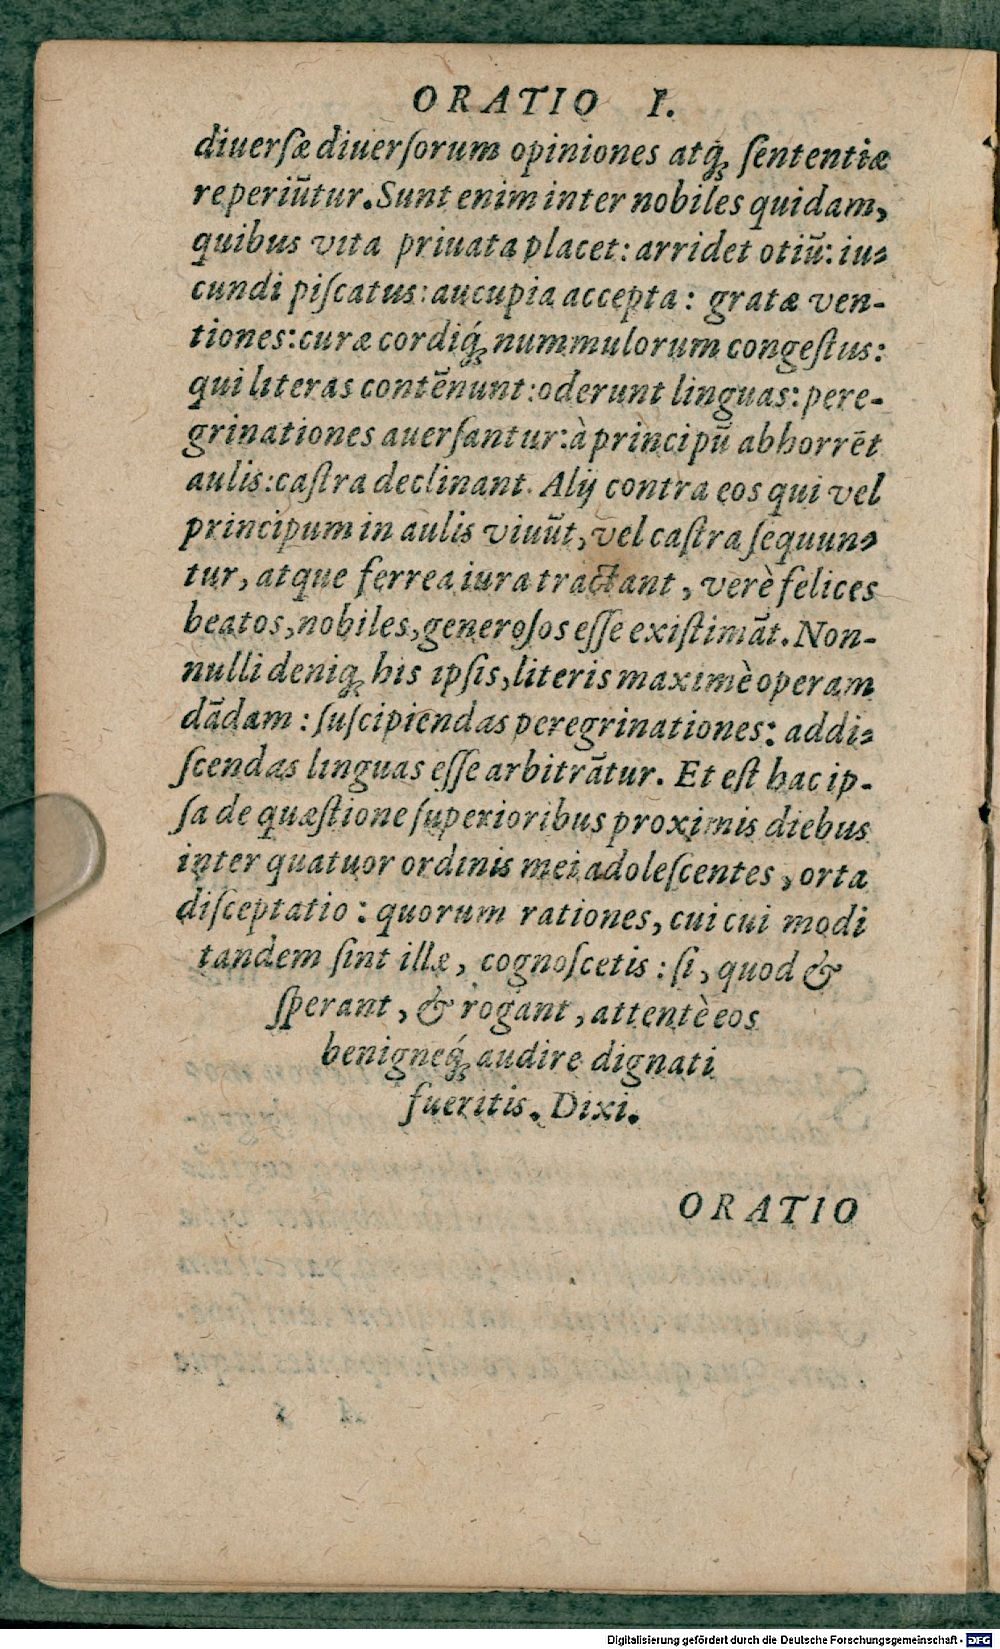 ORATIO I.
diuerſæ diuerſorum opiniones atq́ꝫ ſententiæ
reperiũtur. Sunt enim inter nobiles quidam,
quibus vita priuata placet: arridet otiũ: iu-
cundi piſcatus: aucupia accepta: gratæ ven-
tiones: curæ cordiq́ꝫ nummulorum congeſtus:
qui literas contẽnunt: oderunt linguas: pere-
grinationes auerſantur: à principũ abhorrẽt
aulis: caſtra declinant. Alij contra eos qui vel
principum in aulis viuũt, vel caſtra ſequun-
tur, atque ferrea iura tractant, verè felices
beatos, nobiles, generoſos eſſe exiſtimãt. Non-
nulli deniqꝫ his ipſis, literis maximè operam
dãdam: ſuſcipiendas peregrinationes: addi-
ſcendas linguas eſſe arbitrãtur. Et eſt hac ip-
ſa de quæſtione ſuperioribus proximis diebus
inter quatuor ordinis mei adoleſcentes, orta
diſceptatio: quorum rationes, cui cui modi
tandem ſint illæ, cognoſcetis: ſi, quod &
ſperant, & rogant, attentè eos
benigneq́ꝫ audire dignati
fueritis. Dixi.
ORATIO
Digitalisierung gefördert durch die Deutsche Forschungsgemeinschaft - DFG